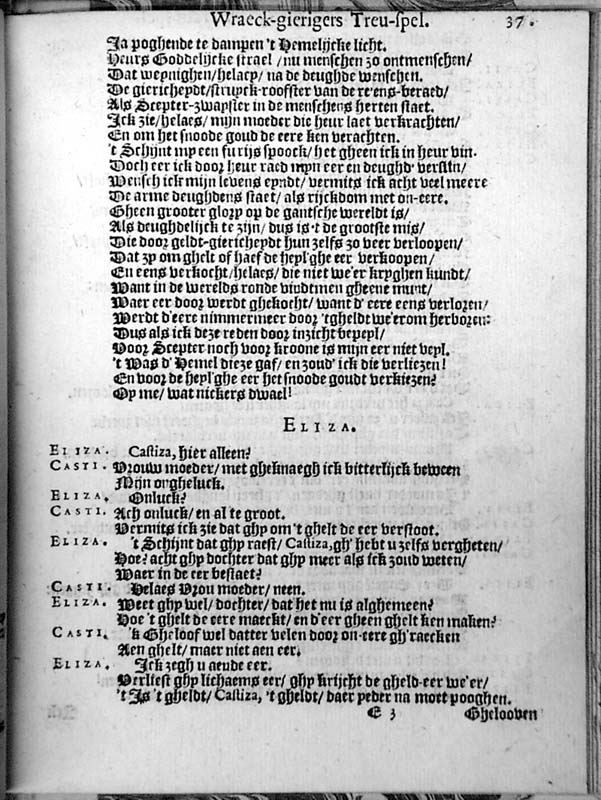 Wraeck-gierigers Treu-spel. 37.
Ja poghende te dampen 't Hemelijcke licht.
Heurs Goddelijcke strael / nu menschen zo ontmenschen /
Dat weynighen / helaes / na de deughde wenschen.
De giericheydt / struyck-roofster van de re'ens-beraed /
Als Scepter-zwayster in de menschens herten staet.
Ick zie / helaes / mijn moeder die heur laet verkrachten /
En om het snoode goud de eere ken verachten.
't Schijnt my een furijs spoock / het gheen ick in heur vin.
Doch eer ick door heur raed mijn eer en deughd' verslin /
Wensch ick mijn levens eyndt / vermits ick acht veel meere
De arme deughdens staet / als rijckdom met on-eere.
Gheen grooter glory op de gantsche wereldt is /
Als deughdelijck te zijn / dus is 't de grootste mis /
Die door geldt-giericheydt hun zelfs zo veer verloopen /
Dat zy om ghelt of haef de heyl'ghe eer verkoopen /
En eens verkocht / helaes / die niet we'er kryghen kundt /
Want in de werelds ronde vindtmen gheene munt /
Waer eer door werdt ghekocht / want d' eere eens verloren /
Werdt d'eere nimmermeer door 'tgheldt we'erom hervoren:
Dus als ick deze reden door inzicht bepeyl /
Voor Scepter noch voor kroone is mijn eer niet veyl.
't Was d' Hemel dieze gaf / en zoud' ick die verliezen!
En voor de heyl'ghe eer het snoode goudt verkiezen?
Op me / wat nickers dwael!
ELIZA.
ELIZA. Castiza, hier alleen?
CASTI. Vrouw moeder / met gheknaegh ick bitterlijck beween
Mijn ongheluck.
ELIZA. Onluck?
CASTI. Ach onluck / en al te groot.
Vermits ick zie dat ghy om 't ghelt de eer verstoot.
ELIZA. 't Schijnt dat ghy raest / Castiza, gh' hebt u zelfs vergheten /
Hoe? acht ghy dochter dat ghy meer als ick zoud weten /
Waer in de eer bestaet?
CASTI. Helaes Vrou moeder / neen.
ELIZA. Weet ghy wel / dochter / dat het nu is alghemeen?
Hoe 't ghelt de eere maeckt / en d'eer gheen ghelt ken maken?
CASTI. 'k Gheloof wel datter velen door on-eere gh'raecken
Aen ghelt / maer niet aen eer.
ELIZA. Ick zegh u aende eer.
Verliest ghy lichaems eer / ghy krijcht de gheld-eer we'er /
't Is 't gheldt / Castiza, 't gheldt / daer yeder na moet pooghen.
E 3 Ghelooven